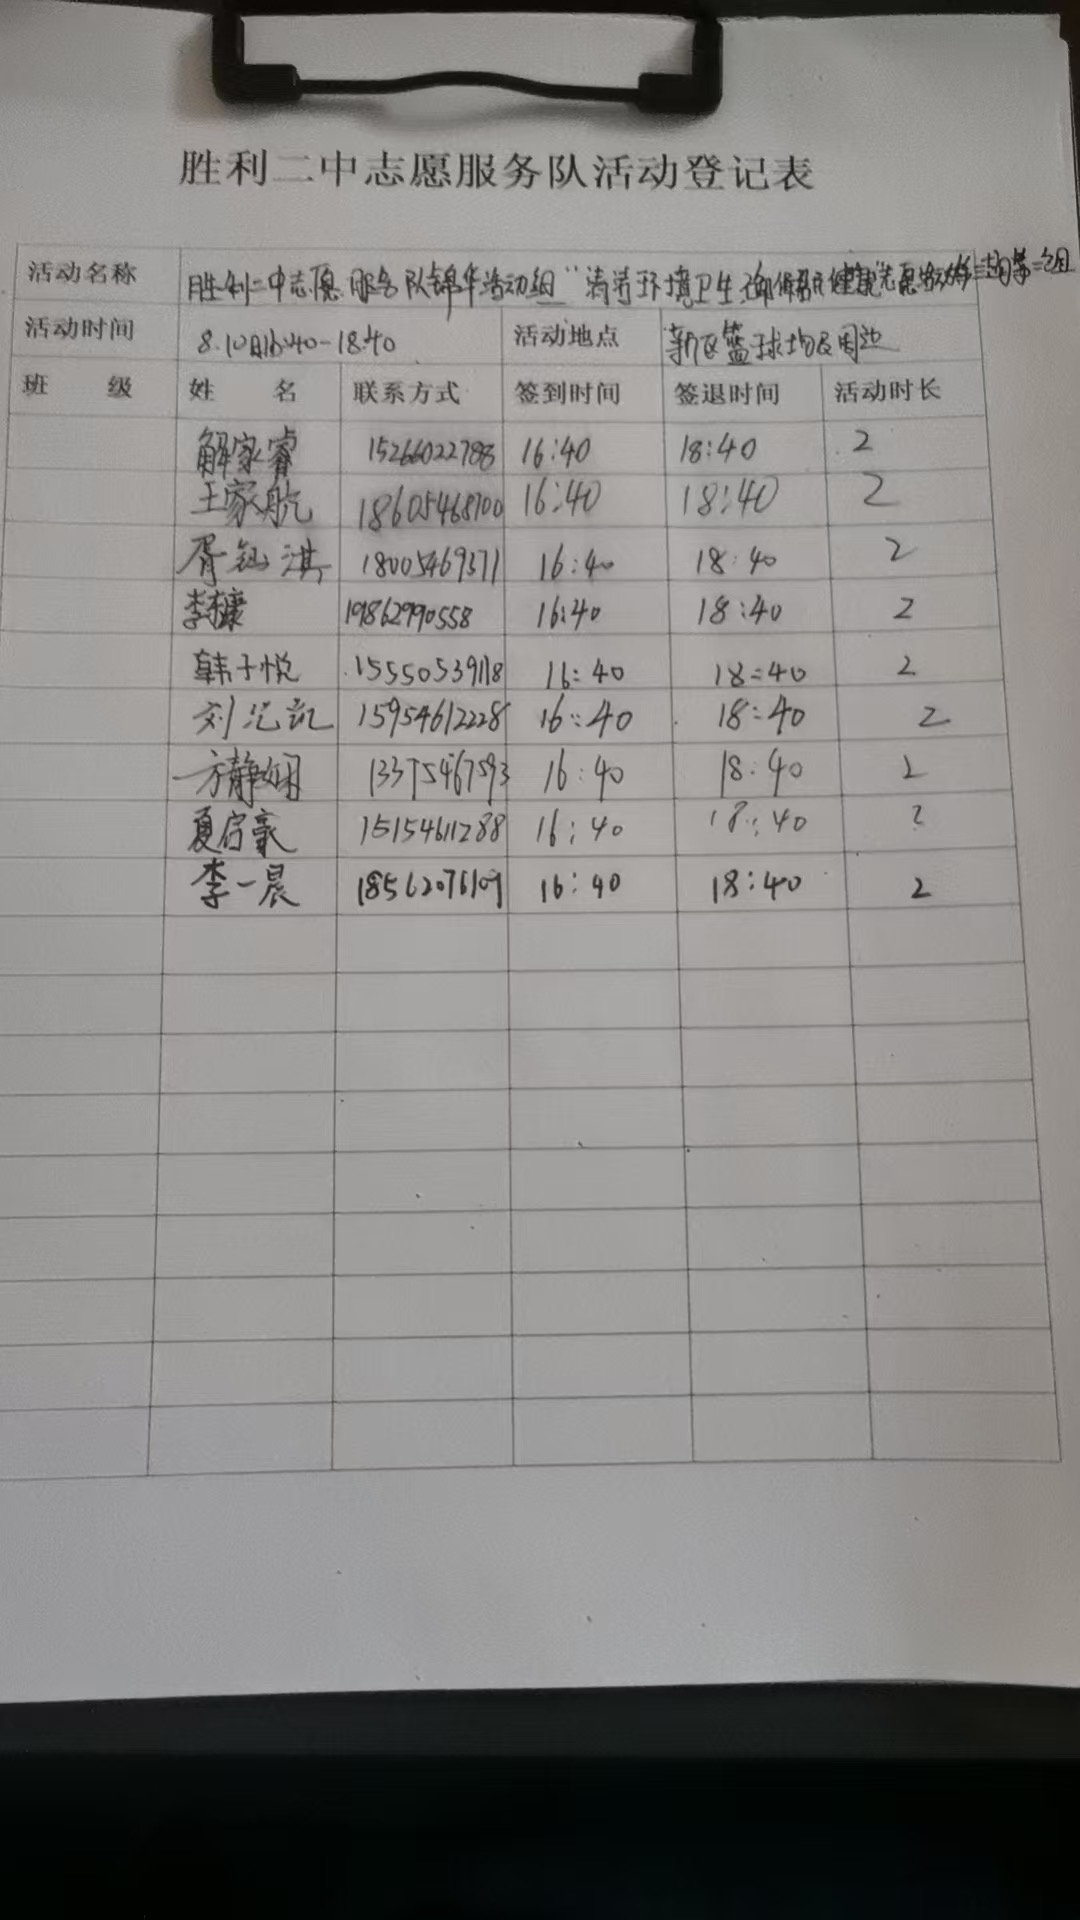 胜利二中志愿服务队活动登记表
活动名称 胜利二中志愿服务队锦华活动组“清洁环境卫生 健康”志愿 第二组
活动时间 8.10日16:40-18:40 活动地点 新区篮球场及周边
班 级 姓 名 联系方式 签到时间 签退时间 活动时长
解家睿 15266022788 16:40 18:40 2
王家航 18605468100 16:40 18:40 2
胥钰淇 18005469371 16:40 18:40 2
李 19862990558 16:40 18:40 2
韩子悦 15550539118 16:40 18:40 2
刘 凯 15954612228 16:40 18:40 2
方静娴 13375467593 16:40 18:40 2
夏启豪 15154611288 16:40 18:40 2
李一晨 18562076109 16:40 18:40 2